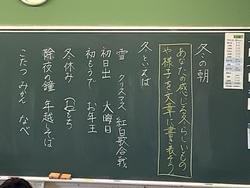 冬の朝
あなたの感じる冬らしいもの
や様子を文章に書き表そう
冬といえば
雪 クリスマス 紅白歌合戦
初日出 大晦日
初もうで お年玉
冬休み もち
除夜の鐘 年越しそば
こたつ みかん なべ